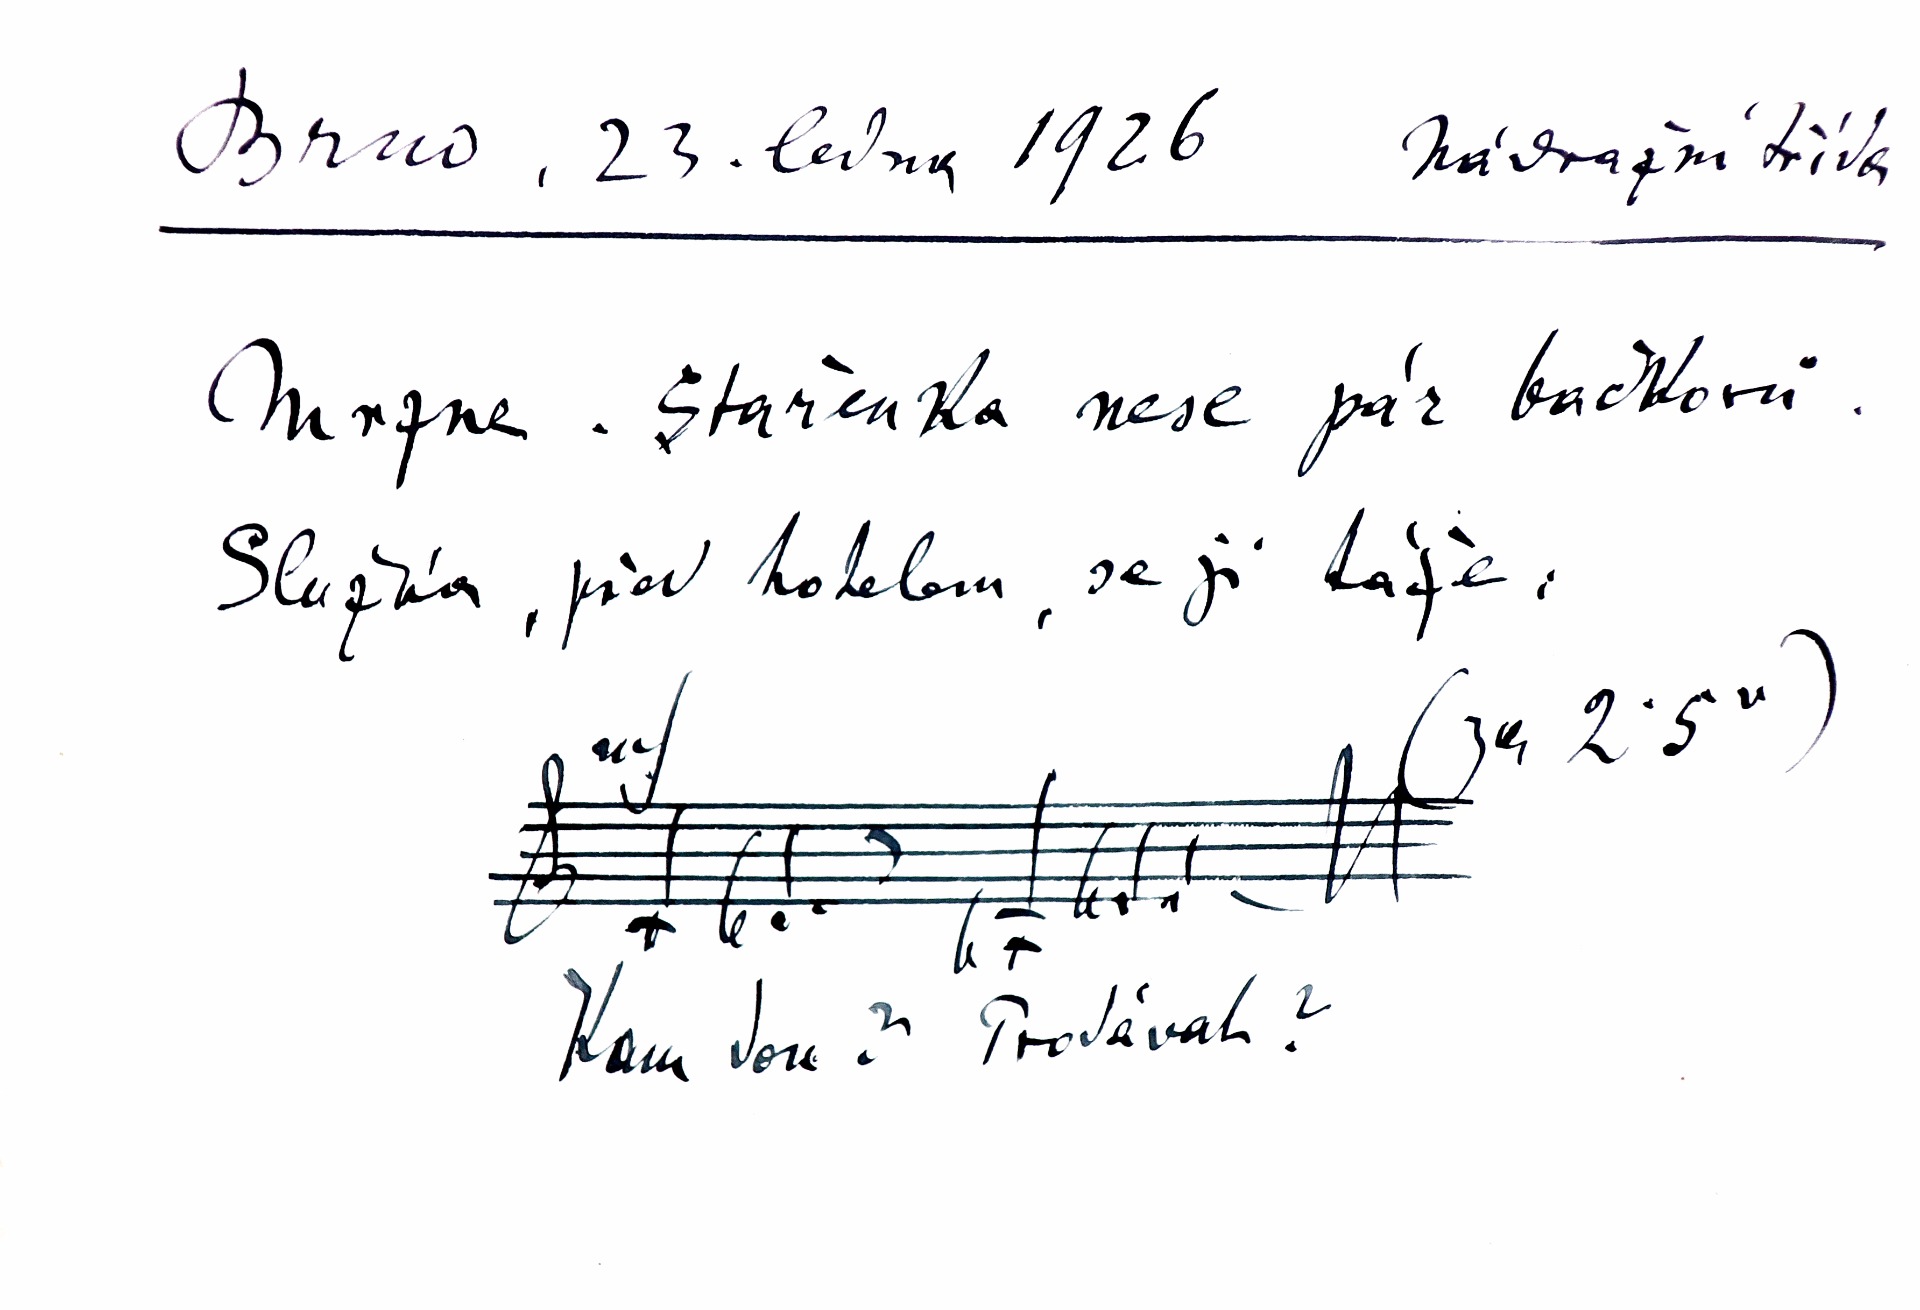 Brno, 23. ledna 1926 Nádražní třída
Mrzne. Stařenka nese pár bačkorů.
Služka, před hotelem, se jí táže.
mf (za 2·5")
Kam jdou? Prodávat?